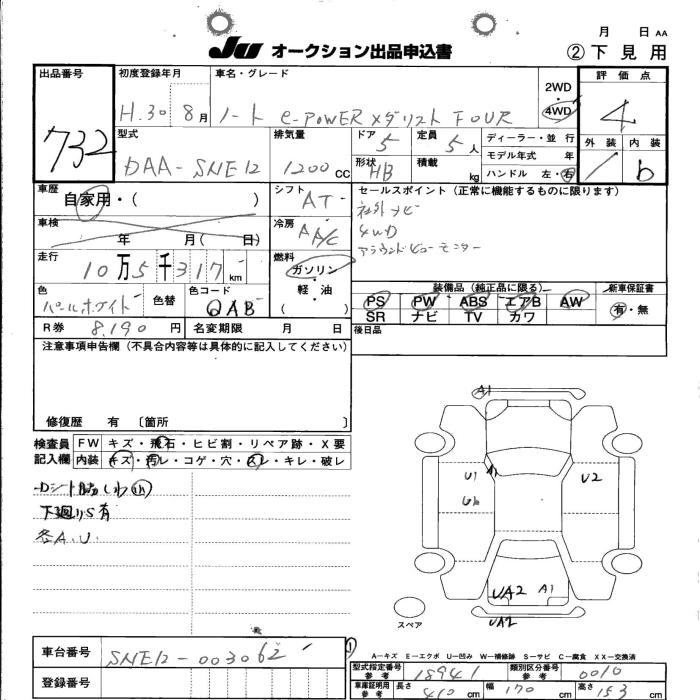 月 日 AA
JU オークション出品申込書 ②下見用
出品番号 初度登録年月 車名・グレード 2WD 評価点
732 H.30 8月 ノート e-POWER メダリスト FOUR 4WD 4
型式 排気量 ドア 定員 ディーラー・並行 外装 内装
DAA-SNE12 1200CC 5 5人 モデル年式 年 b
形状 積載 ハンドル 左・右
HB kg
車歴 シフト セールスポイント(正常に機能するものに限ります)
自家用・( ) AT 社外ナビ
車検 冷房 4WD
年 月( 日) A/C アラウンドビューモニター
走行 燃料
10万5千317km ガソリン・軽油
( )
装備品(純正品に限る) 新車保証書
色 色替 色コード PS PW ABS エアB AW 有・無
パールホワイト QAB SR ナビ TV カワ
R券 8,190円 名変期限 月 日 後日品
注意事項申告欄(不具合内容等は具体的に記入してください)
修復歴 有 〔箇所 〕
検査員 FW キズ・飛石・ヒビ割・リペア跡・X要
記入欄 内装 キズ・汚レ・コゲ・穴・スレ・キレ・破レ
Dシート脇しわ小
下廻りS有
各A.U.
A1
U1 A1 U2
UA2 A1
UA2
スペア
A-キズ E-エクボ U-凹み W-補修跡 S-サビ C-腐食 XX-交換済
車台番号 SNE12-003062
型式指定番号 参考 18941 類別区分番号 参考 0010
登録番号
車庫証明用 参考 長さ 410cm 幅 170cm 高さ 153cm